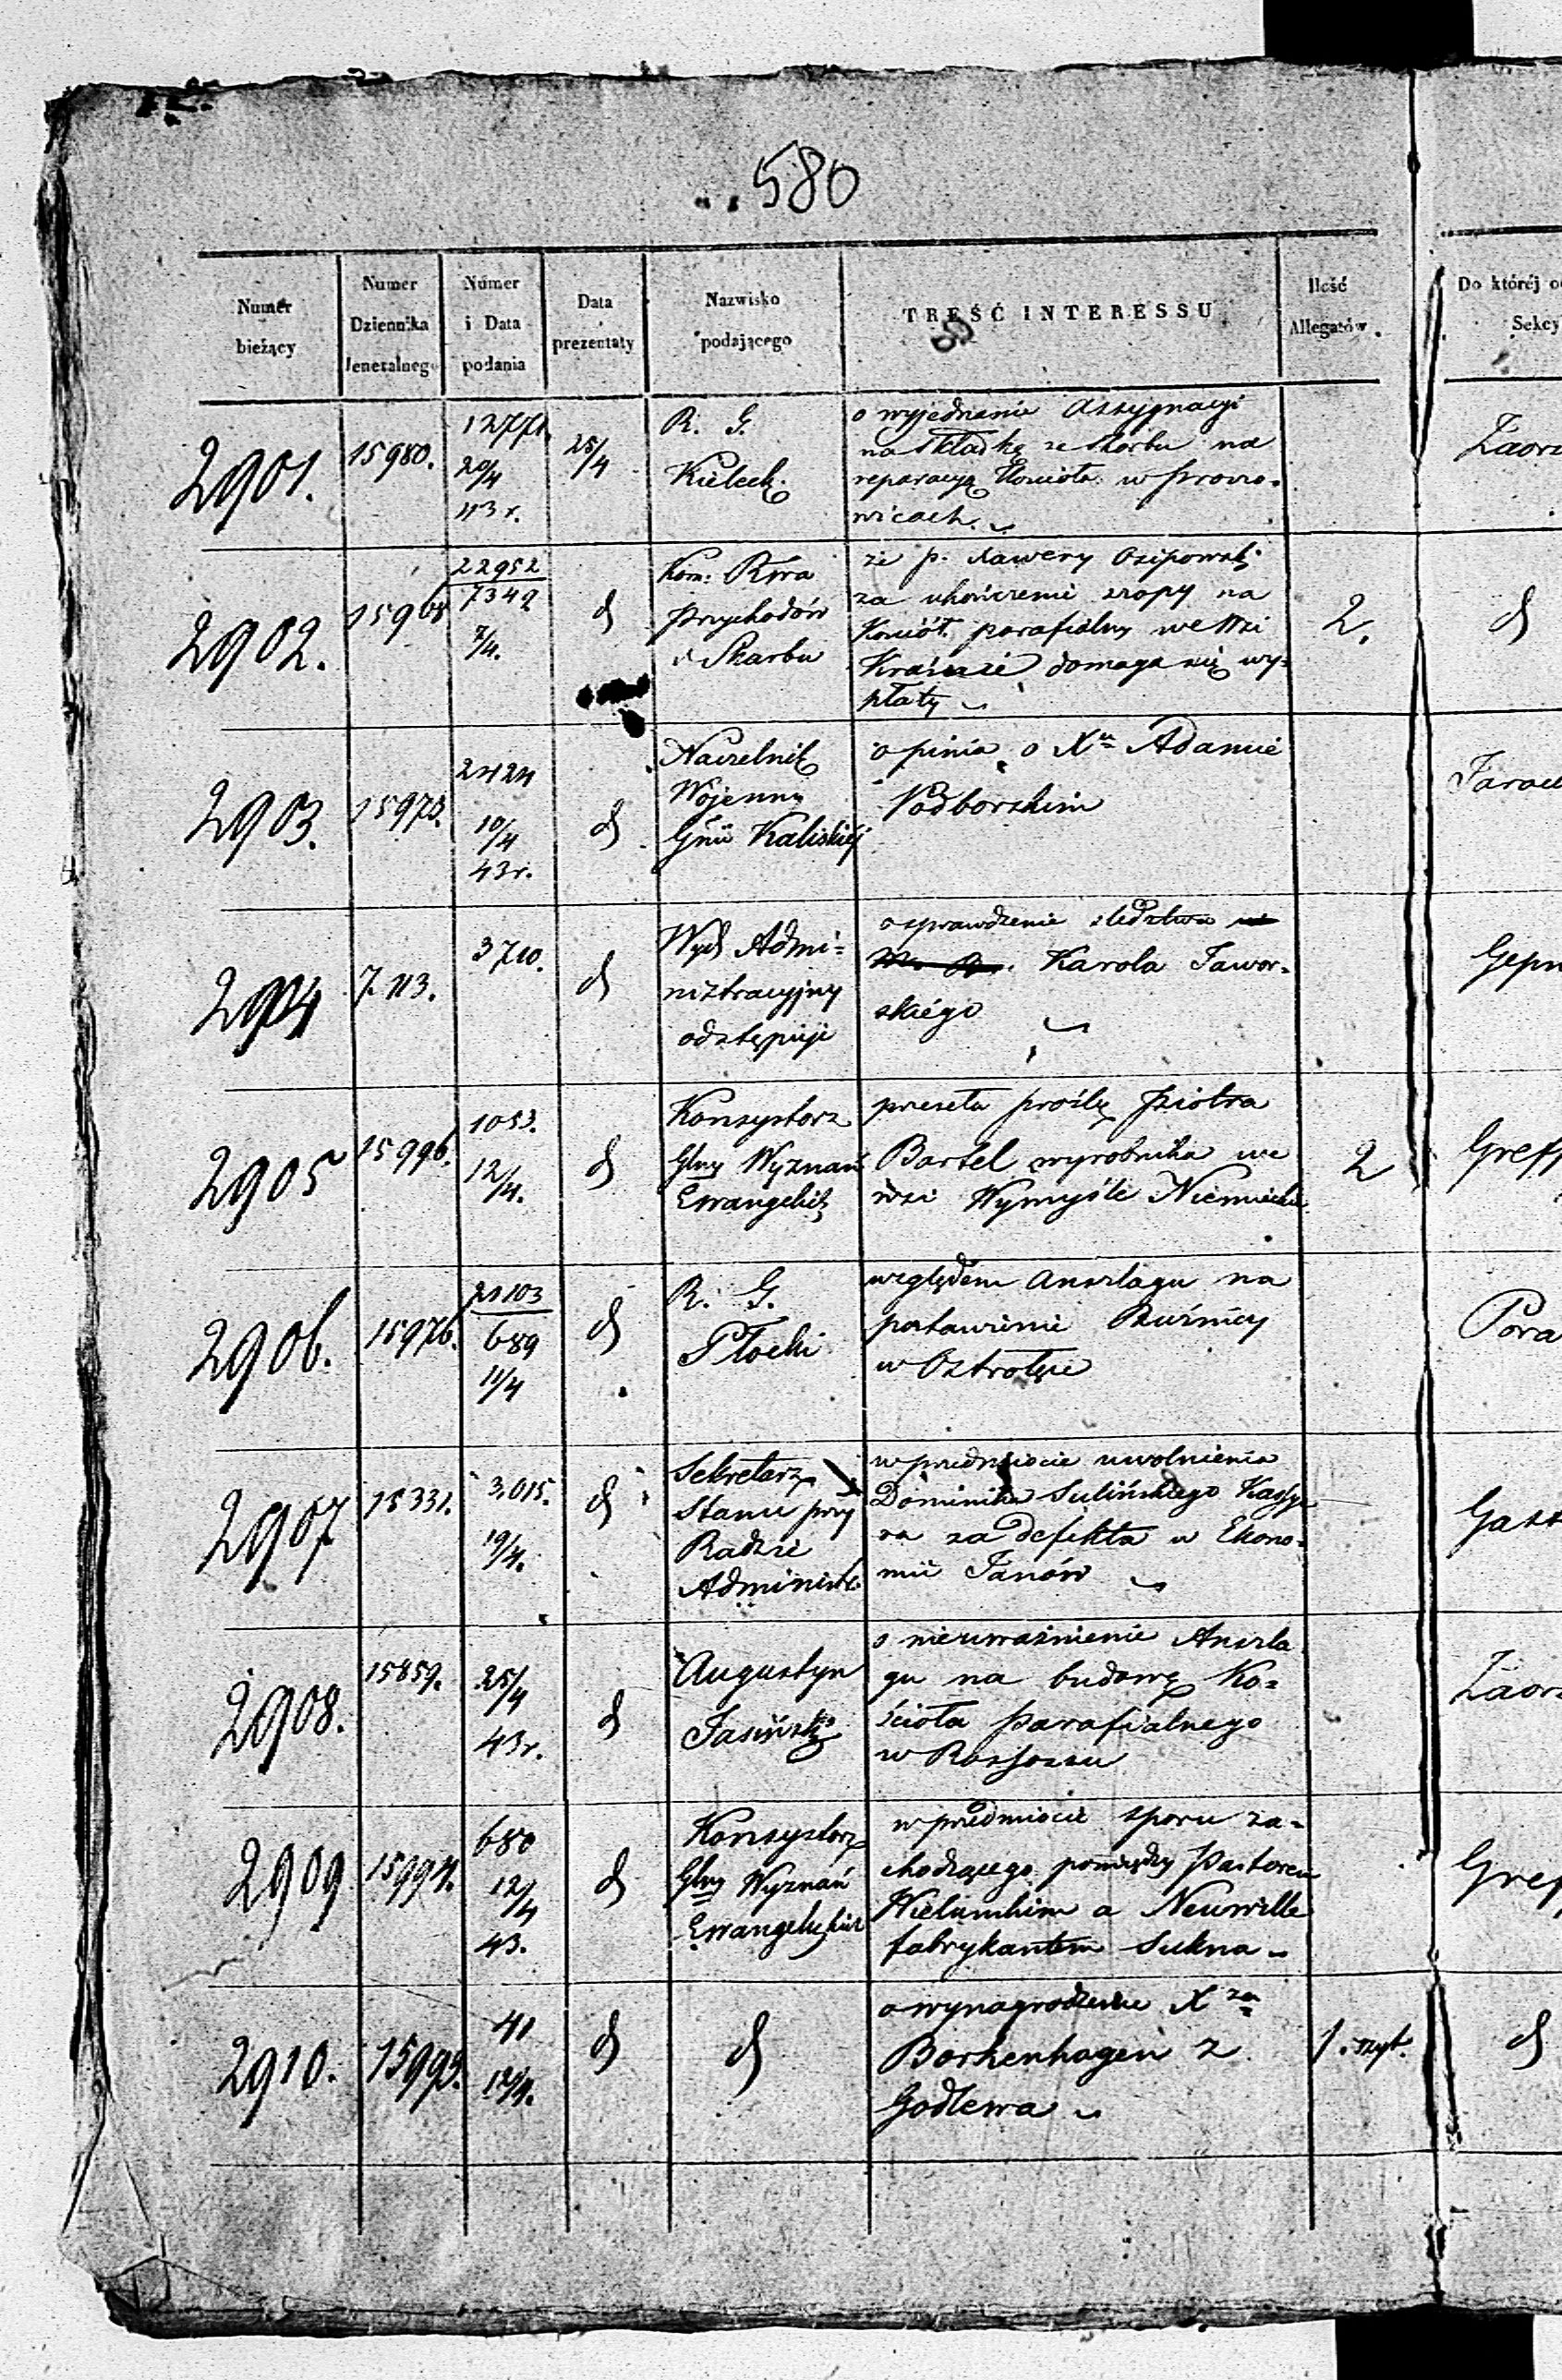 580
Numer bieżący
Numer Dziennika Jeneralnego
Numer i Data podania
Data prezentaty
Nazwisko podającego
TREŚĆ INTERESSU
Ilość Allegatów
Do któréj
Sekcy
2901.
15980.
20/4
43 r.
25/4
R. G.
Kieleck.
o wyjednanie Assygnacyi
na składkę ze Skarbu na
reparacyą Kościoła w
wicach.
Zaorz
2902.
22952
7342
7/4.
d
Kom: Rwa
Przychodów
i Skarbu
że p. Xawery Osipowski
za ukończenie szopy na
Kośció: parafialny we Wsi
domaga się wy=
płaty
2.
d
2903.
15970.
2424
10/4
43 r.
d
Naczelnik
Wojenny
Gńii Kaliskiéj
opinia o Xu Adamie
Nadborskim
2904
7113.
3710.
d
Wyd Admi=
nistracyjny
odstępuje
o sprawdzenie śledztwa
Karola Jawor=
skiégo
2905
15996.
1053.
12/4.
d
Konsystorz
Glny Wyznań
Ewangelick
przesyła prośbę Piotra
Bartel wyrobnika we
wsi Wymyśle Niemieckie
2
Greff
2906.
15976.
21103
689
11/4
d
R. G.
Płocki
względem Anszlagu na
postawienie Bużnicy
w Ostrołęce
Pora
2907
15331.
3,015.
19/4.
d
Sekretarz
Stanu przy
Radzie
Administ.
w przedmiocie uwolnienia
Dominika Sulińskiego Kassye
ra za defekta w Ekono=
mii Janów
2908.
15859.
25/4
43 r.
d
Augustyn
Jasiński
o nieuważnienie Anszla
gu na budowę Ko=
ścioła parafialnego
w Rossoszu
Zaorz
2909
15994.
680
12/4
43.
d
Konsystorz
Glny Wyznań
Ewangelickich
w przedmiocie sporu za=
chodzącego pomiędzy Pastorem
a Neuwille
fabrykantem Sukna
Gref
2910.
15995.
41
12/4.
d
d
o wynagrodzenie Xza
Borkenhagen z
Godlewa
1. szyt.
d